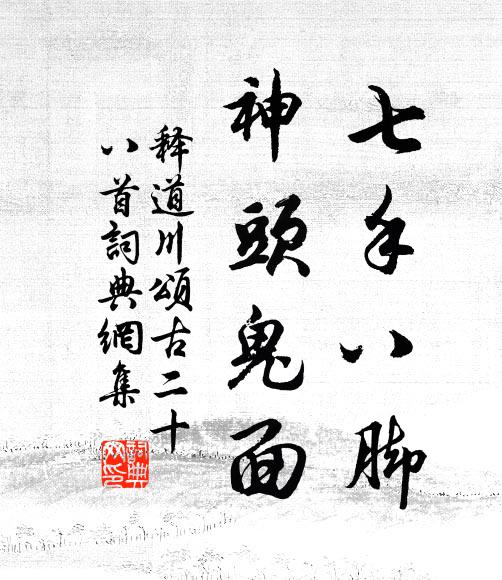 七手八脚
神頭鬼面
释道川頌古二十
八首詞典網集